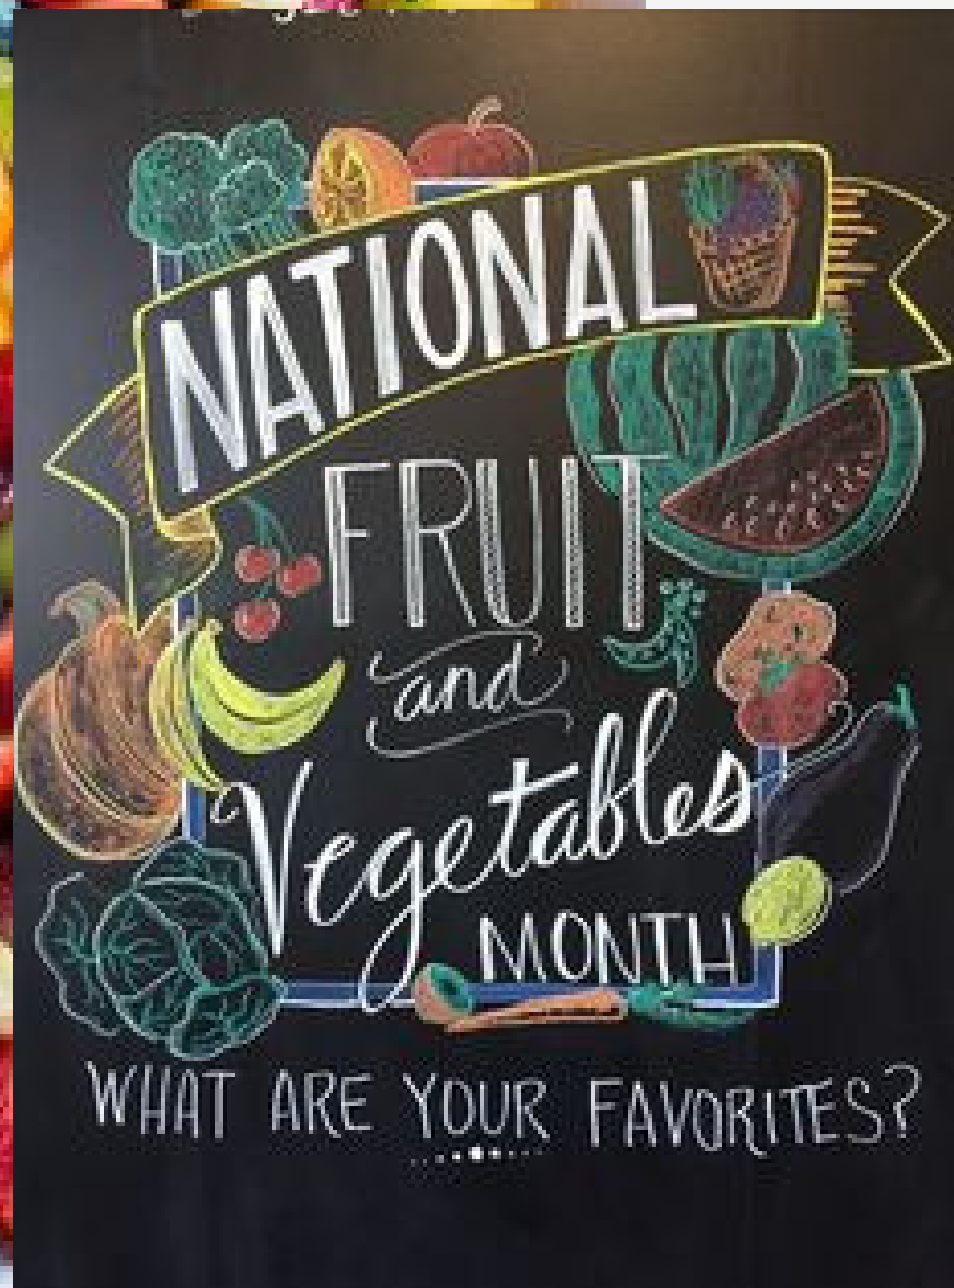 NATIONAL
FRUIT
and
Vegetables
MONTH
WHAT ARE YOUR FAVORITES?